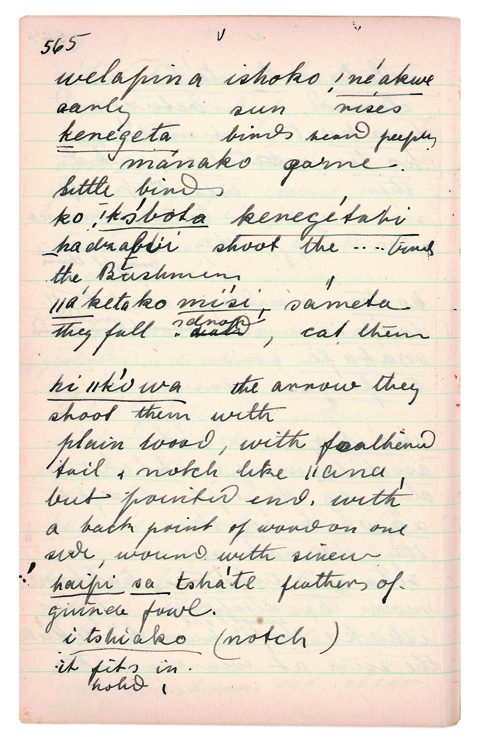 565
welapina ishoko, !néakwe
early sun rises
kenégeta birds heard people
mánako game.
little birds
ko !kśbota kenegétabi
hadzabii shoot the .... birds
the Bushmen
||áketako mísi, sámeta
they fall down, eat them
hi ||kówa the arrow they
shoot them with
plain wood, with feathered
tail, notch like ||ana'
but pointed end, with
a back point of wood on one
side, wound with sinew
haipi sa tsháte feathers of
guinea fowl.
itshiáko (notch)
it fits in.
hold,